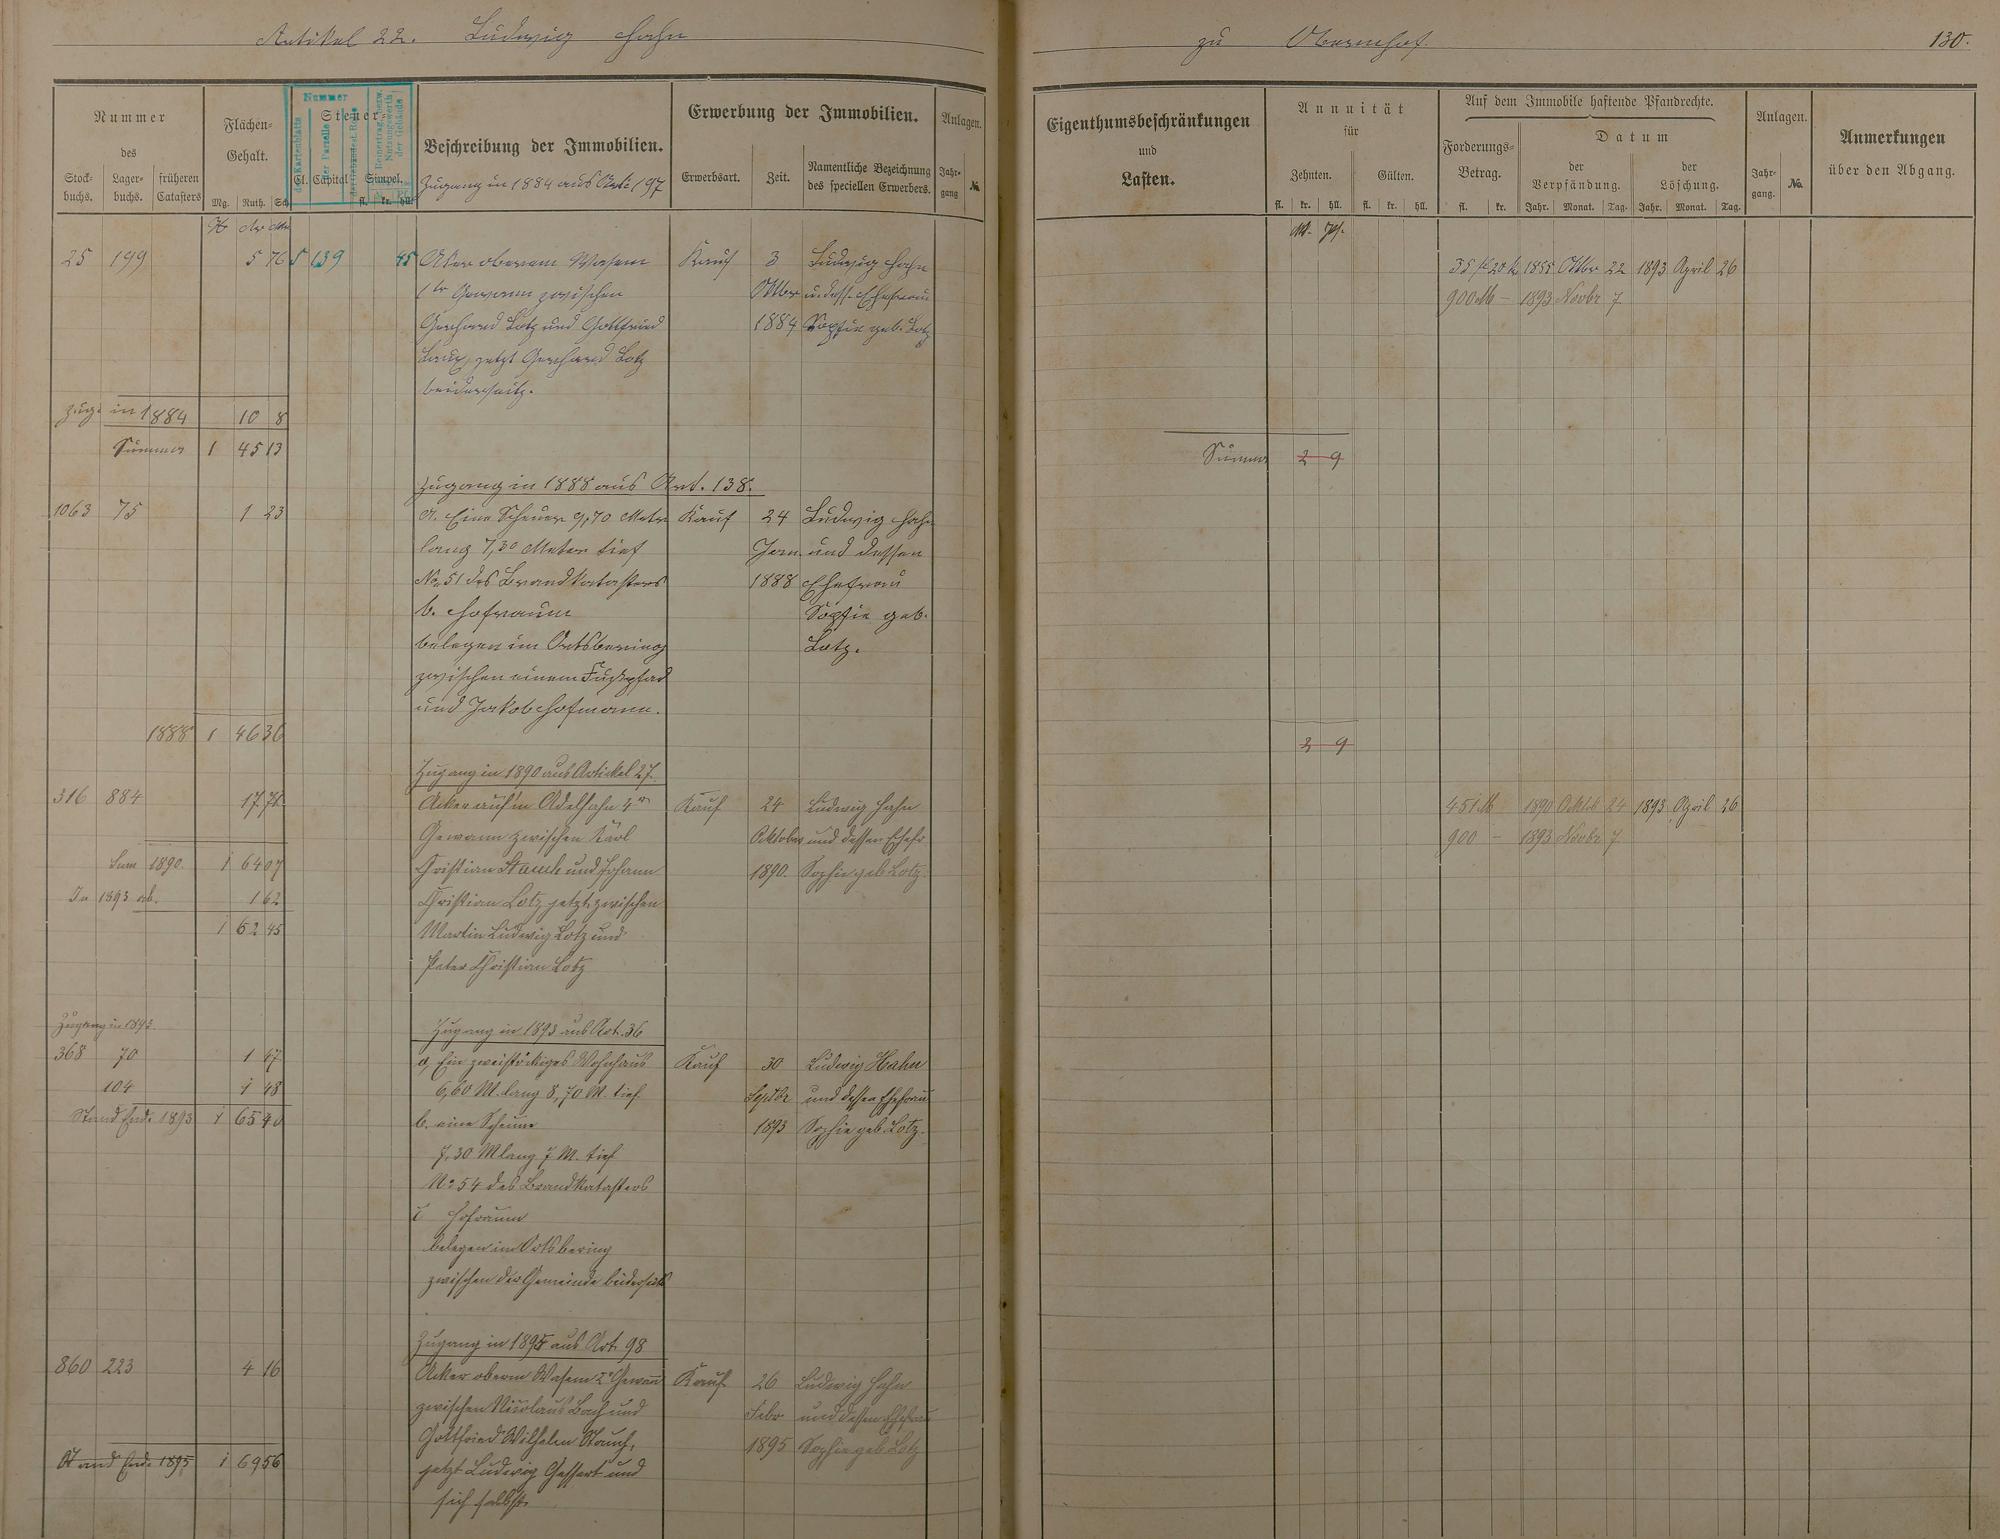 Artikel 22. Ludwig Hahn zu Obernhof. 130.
Nummer
des
Stock-buchs. Lager-buchs. früheren Catasters
Flächen-Gehalt.
Mg. Ruth. Sch.
Steuer-
Cl. Capital Simpel.
fl. kr. hll.
Nummer
des Kartenblatts
der Parzelle
Beschreibung der Immobilien.
Zugang in 1884 aus Art. 197
Erwerbung der Immobilien.
Erwerbsart. Zeit. Namentliche Bezeichnung des speciellen Erwerbers.
Anlagen.
Jahr-gang №
Eigenthumsbeschränkungen
und
Lasten.
Annuität
für
Zehnten. Gülten.
fl. kr. hll. fl. kr. hll.
Auf dem Immobile haftende Pfandrechte.
Forderungs-Betrag.
fl. kr.
Datum
der Verpfändung. der Löschung.
Jahr. Monat. Tag. Jahr. Monat. Tag.
Anlagen.
Jahr-gang. No.
Anmerkungen
über den Abgang.
25 199 5 76 5 139 45 Aker oberem Wasem Kauf 3 Ludwig Hahn
1te Gewann zwischen Oktbr u. dess. Ehefrau
Gerhard Lotz und Gottfried 1884 Sophie geb. Lotz
Laux, jetzt Gerhard Lotz
beiderseits.
35 fl 20 k 1855 Oktbr 22 1893 April 26
900 M — 1893 Novbr 7
Zug. in 1884 10 8
Summa 1 45 13
Summa 2 9
Zugang in 1888 aus Art. 138.
1063 75 1 23 a. Eine Scheuer 9,70 Meter Kauf 24 Ludwig Hahn
lang 7,30 Meter tief Jan. und dessen
No. 51 des Brandkatasters 1888 Ehefrau
b. Hofraum Sophie geb.
belegen im Ortsbering Lotz.
zwischen einem Fußpfad
und Jakob Hofmann.
1888 1 46 36
2 9
Zugang in 1890 aus Artikel 27.
316 884 17 71 Acker auf'm Adelhahn 4r Kauf 24 Ludwig Hahn
Gewann zwischen Karl Oktober und dessen Ehefr
Christian Stauch und Johann 1890. Sophie geb Lotz.
Christian Lotz jetzt zwischen
Martin Ludwig Lotz und
Peter Christian Lotz
451 M 1890 Oktbr 24 1893 April 26
900 — 1893 Novbr 7
Sum 1890. 1 64 07
In 1893 ab. 1 62
1 62 45
Zugang in 1893.
Zugang in 1893 aus Art. 36
368 70 1 47 a, Ein zweistöckiges Wohnhaus Kauf 30 Ludwig Hahn
104 1 48 6,60 M. lang 8,70 M. tief Septbr und dessen Ehefrau
Stand Ende 1893 1 65 40 b. eine Scheune 1893 Sophie geb. Lotz.
7,30 M lang 7 M. tief
No 54 des Brandkatasters
c Hofraum
belegen im Ortsbering
zwischen der Gemeinde beiderseits
Zugang in 1895 aus Art. 98
860 223 4 16 Acker oberm Wasem 2r Gewann Kauf 26 Ludwig Hahn
zwischen Nicolaus Bach und Febr und dessen Ehefrau
Gottfried Wilhelm Stauch, 1895 Sophie geb Lotz
Stand Ende 1895 1 69 56 jetzt Ludwig Gessert und
sich selbst.